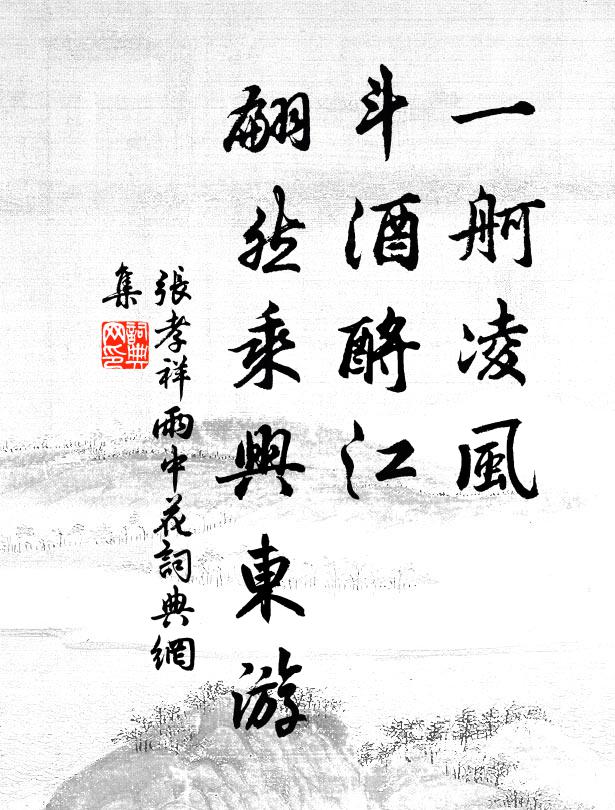 一舸凌風
斗酒酹江
翩然乘興東游
張孝祥雨中花詞典網
集
詞典網印